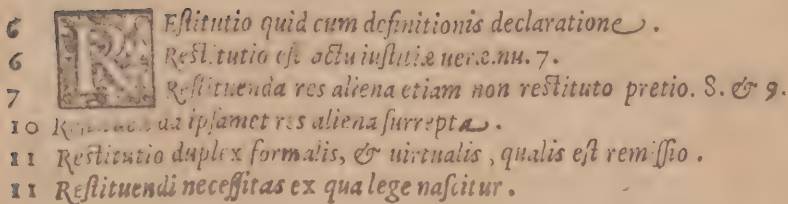 6 REstitutio quid cum definitionis declaratione.
6 Restitutio est actu iustitiæ ueræ. nu. 7.
7 Restituenda res aliena etiam non restituto pretio. 8. & 9.
10 ipsamet res aliena surrepta.
11 Restitutio duplex formalis, & uirtualis, qualis est remissio.
11 Restituendi necessitas ex qua lege nascitur.